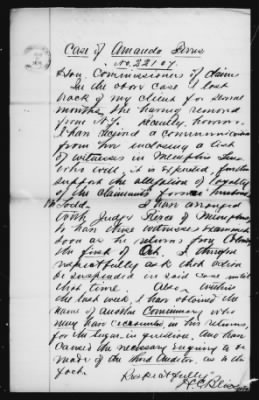 Case of Amanda
No. 22107.
Hon. Commissioners of Claims
In the above case I lost
track of my client for several
months, she having removed
from N.Y. Recently, however
I have received a communication
from her inclosing a list
of witnesses in Memphis Tenn
who will, it is expected, further
support the allegation of loyalty
of the claimants former
Todd. I have arranged
with Judge Pierce of Memphis
to have these witnesses examined
soon as he returns from
the first of Oct. I
respectfully ask that action
be suspended in said case until
that time. Also within
the last week, I have obtained the
name of another Commissary who
may have accounted, in his returns,
for the sugar in question, and have
caused the necessary inquiry to be
made of the third Auditor, as to the
fact.
Respectfully